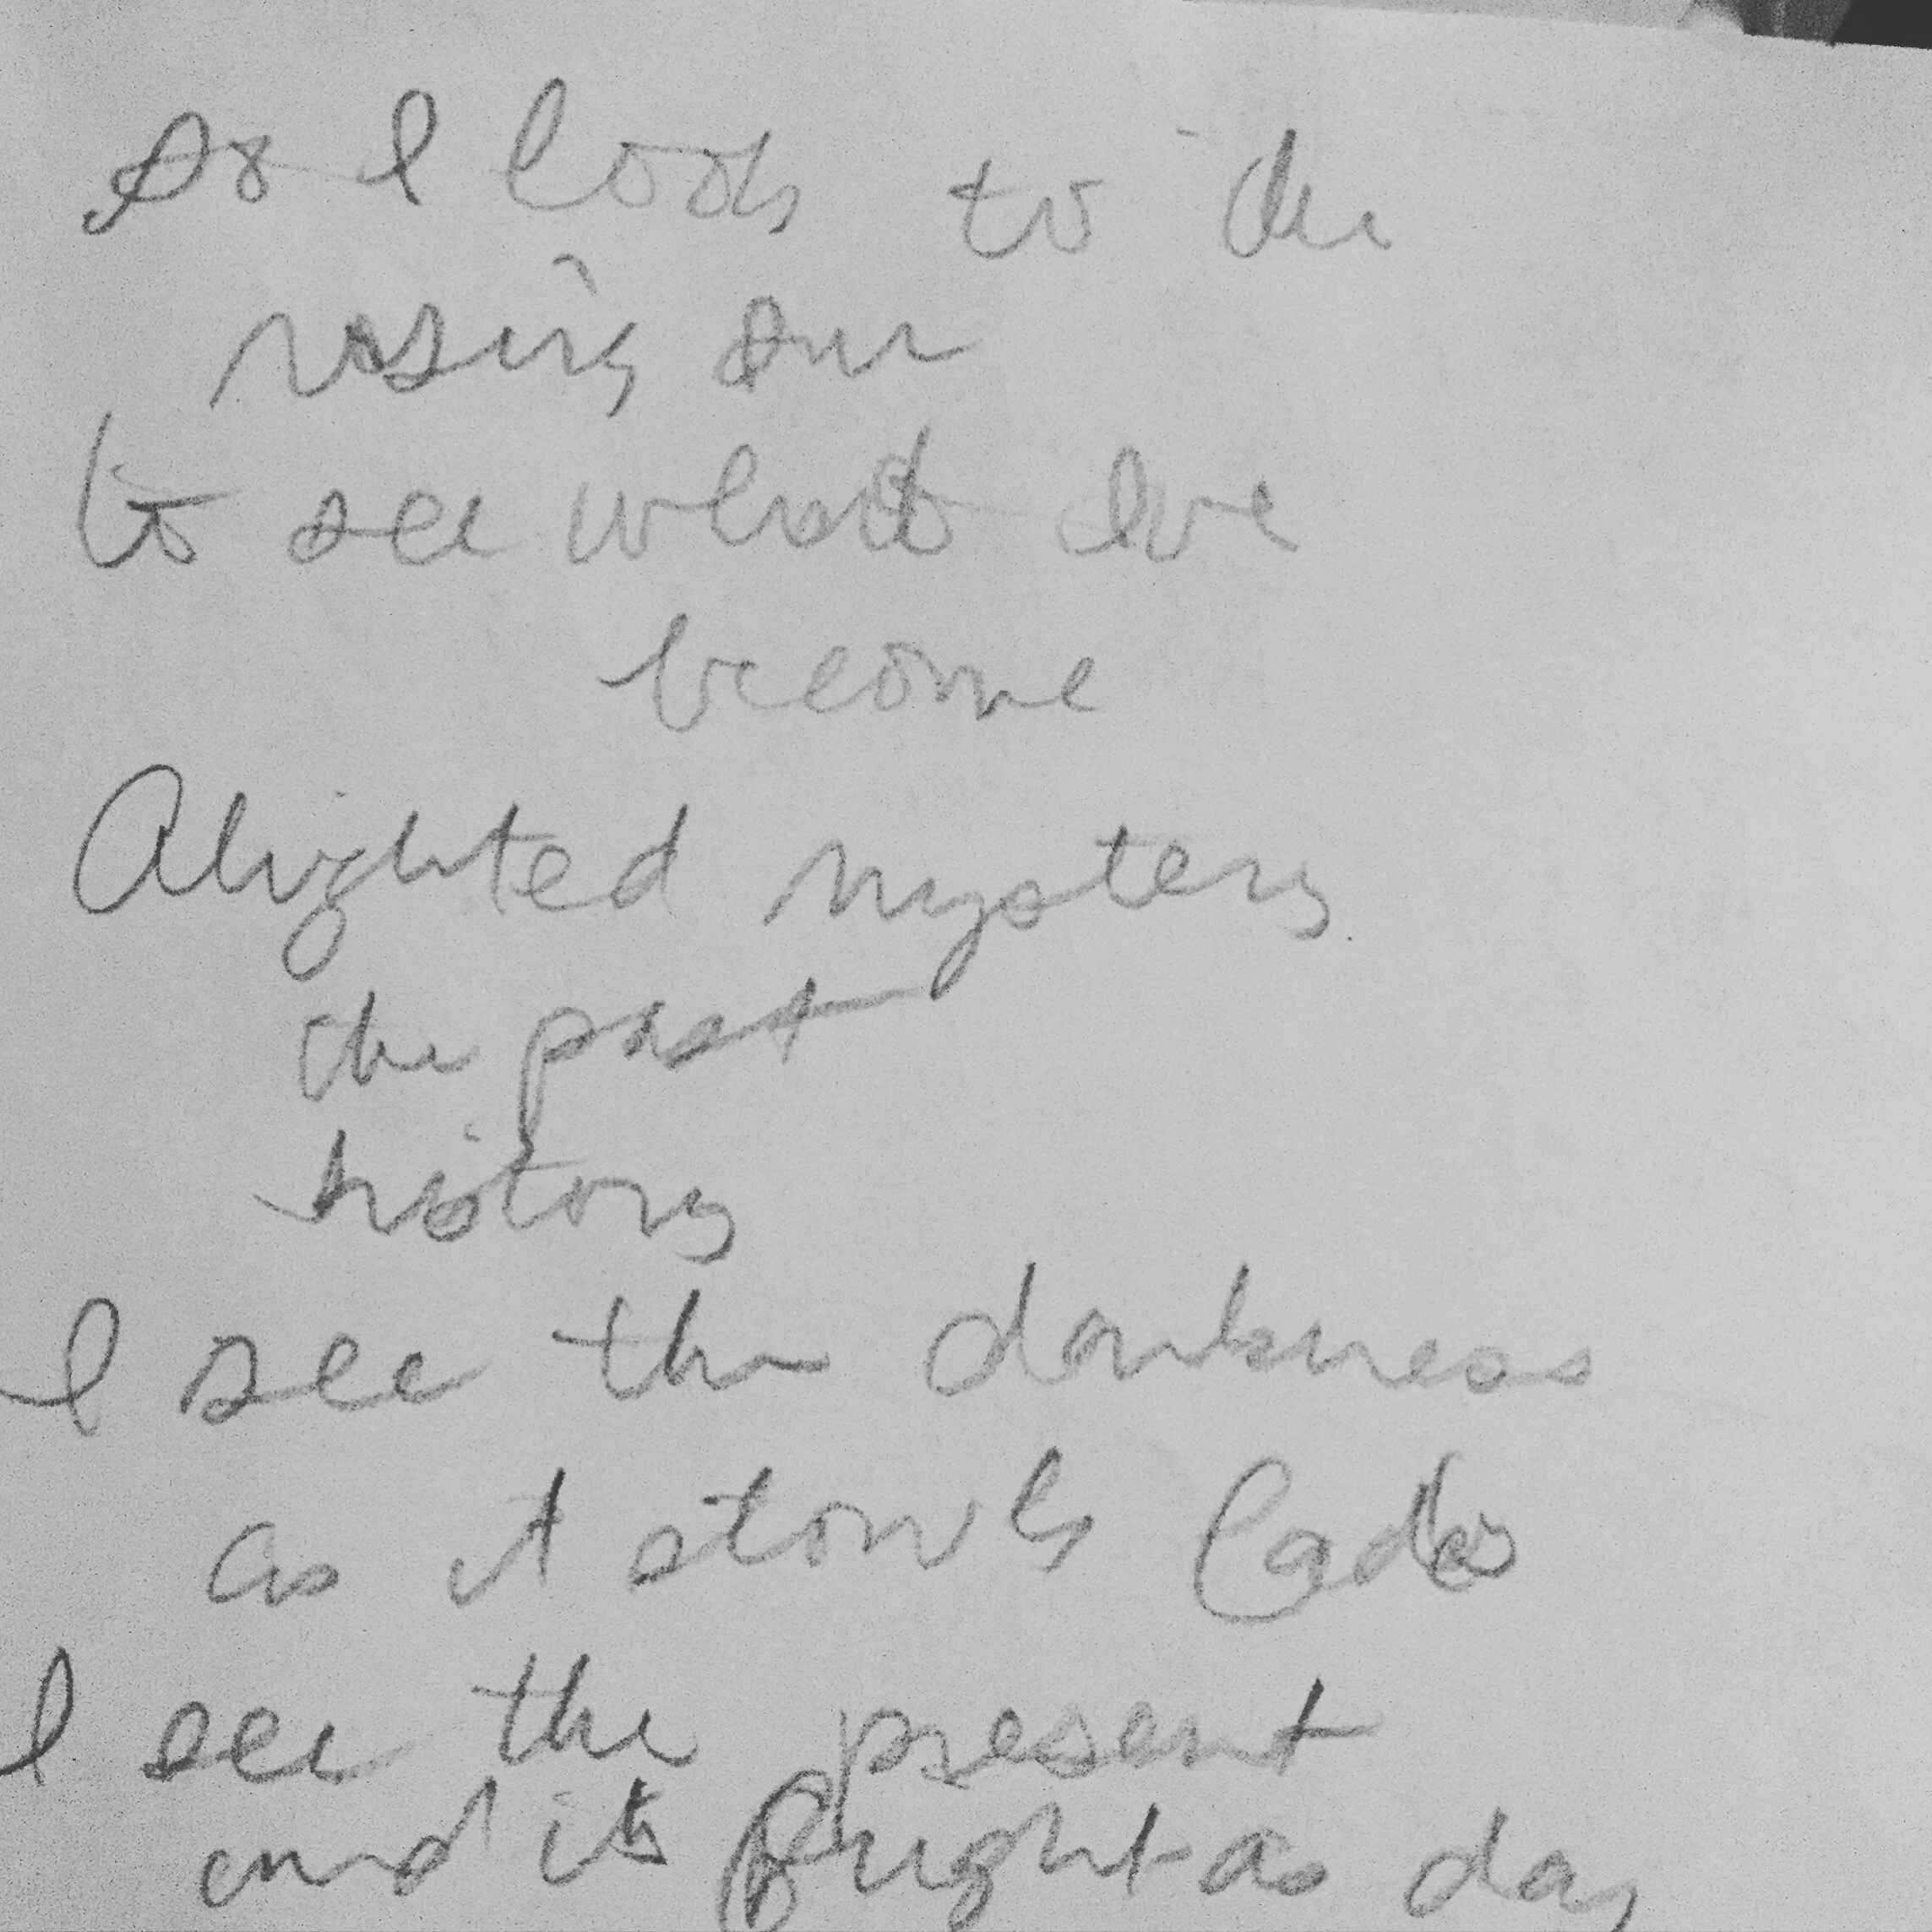 As I look to the
rising sun
to see what Ive
become
Alighted mystery
the past
history
I see the darkness
as it
I see the present
and its Bright as day